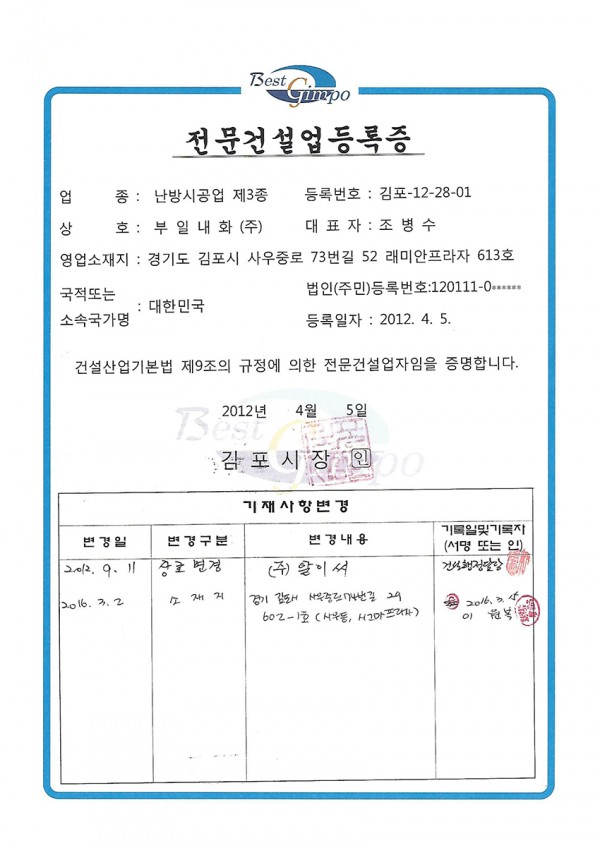 Best
Gimpo
전문건설업등록증
업 종 : 난방시공업 제3종 등록번호 : 김포-12-28-01
상 호 : 부일내화(주) 대표자 : 조병수
영업소재지 : 경기도 김포시 사우중로 73번길 52 래미안프라자 613호
국적또는 소속국가명 : 대한민국 법인(주민)등록번호:120111-0******
등록일자 : 2012. 4. 5.
건설산업기본법 제9조의 규정에 의한 전문건설업자임을 증명합니다.
Best Gimpo
2012년 4월 5일
김포시장 인
기재사항변경
변경일 변경구분 변경내용 기록일및기록자 (서명 또는 인)
2012. 9. 11 상호변경 (주) 알이석
2016. 3. 2 소재지 경기 김포시 29 2016. 3. 15
602-1호 (사우동, 시그마프라자) 이 원복